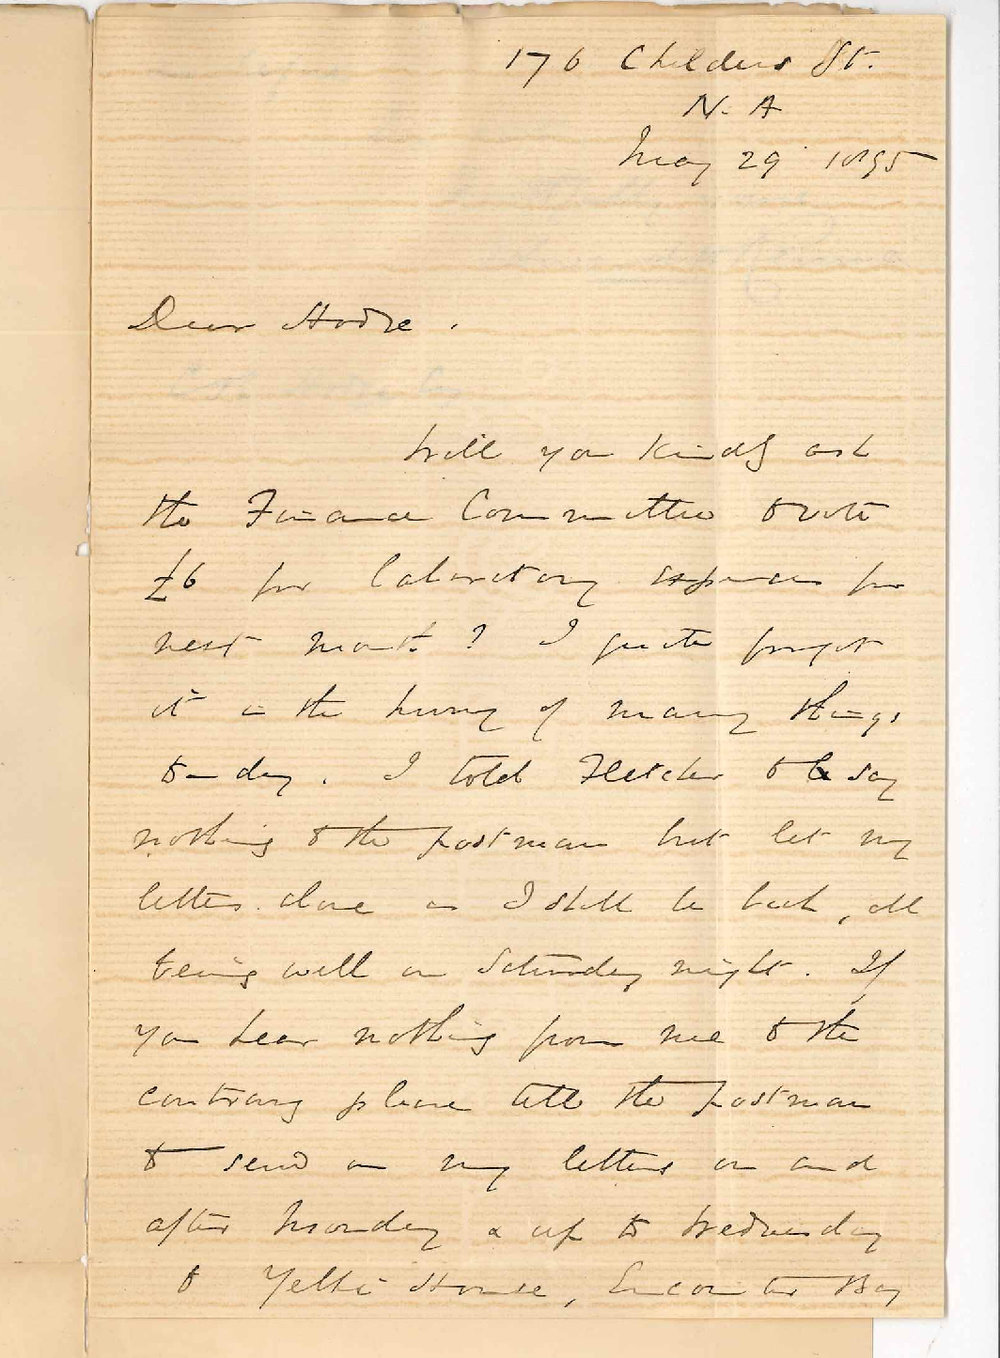 176 Childers St.
N. A
May 29 1895
Dear Hodge.
Will you kindly ask
the Finance Committee to vote
£6 for laboratory expenses for
next month? I quite forgot
it in the hurry of many things
to-day. I told Fletcher to say
nothing to the postman but let my
letters alone as I shall be back, all
being well on Saturday night. If
you hear nothing from me to the
contrary please tell the postman
to send on my letters on and
after Monday & up to Wednesday
to Yelki House, Encounter Bay